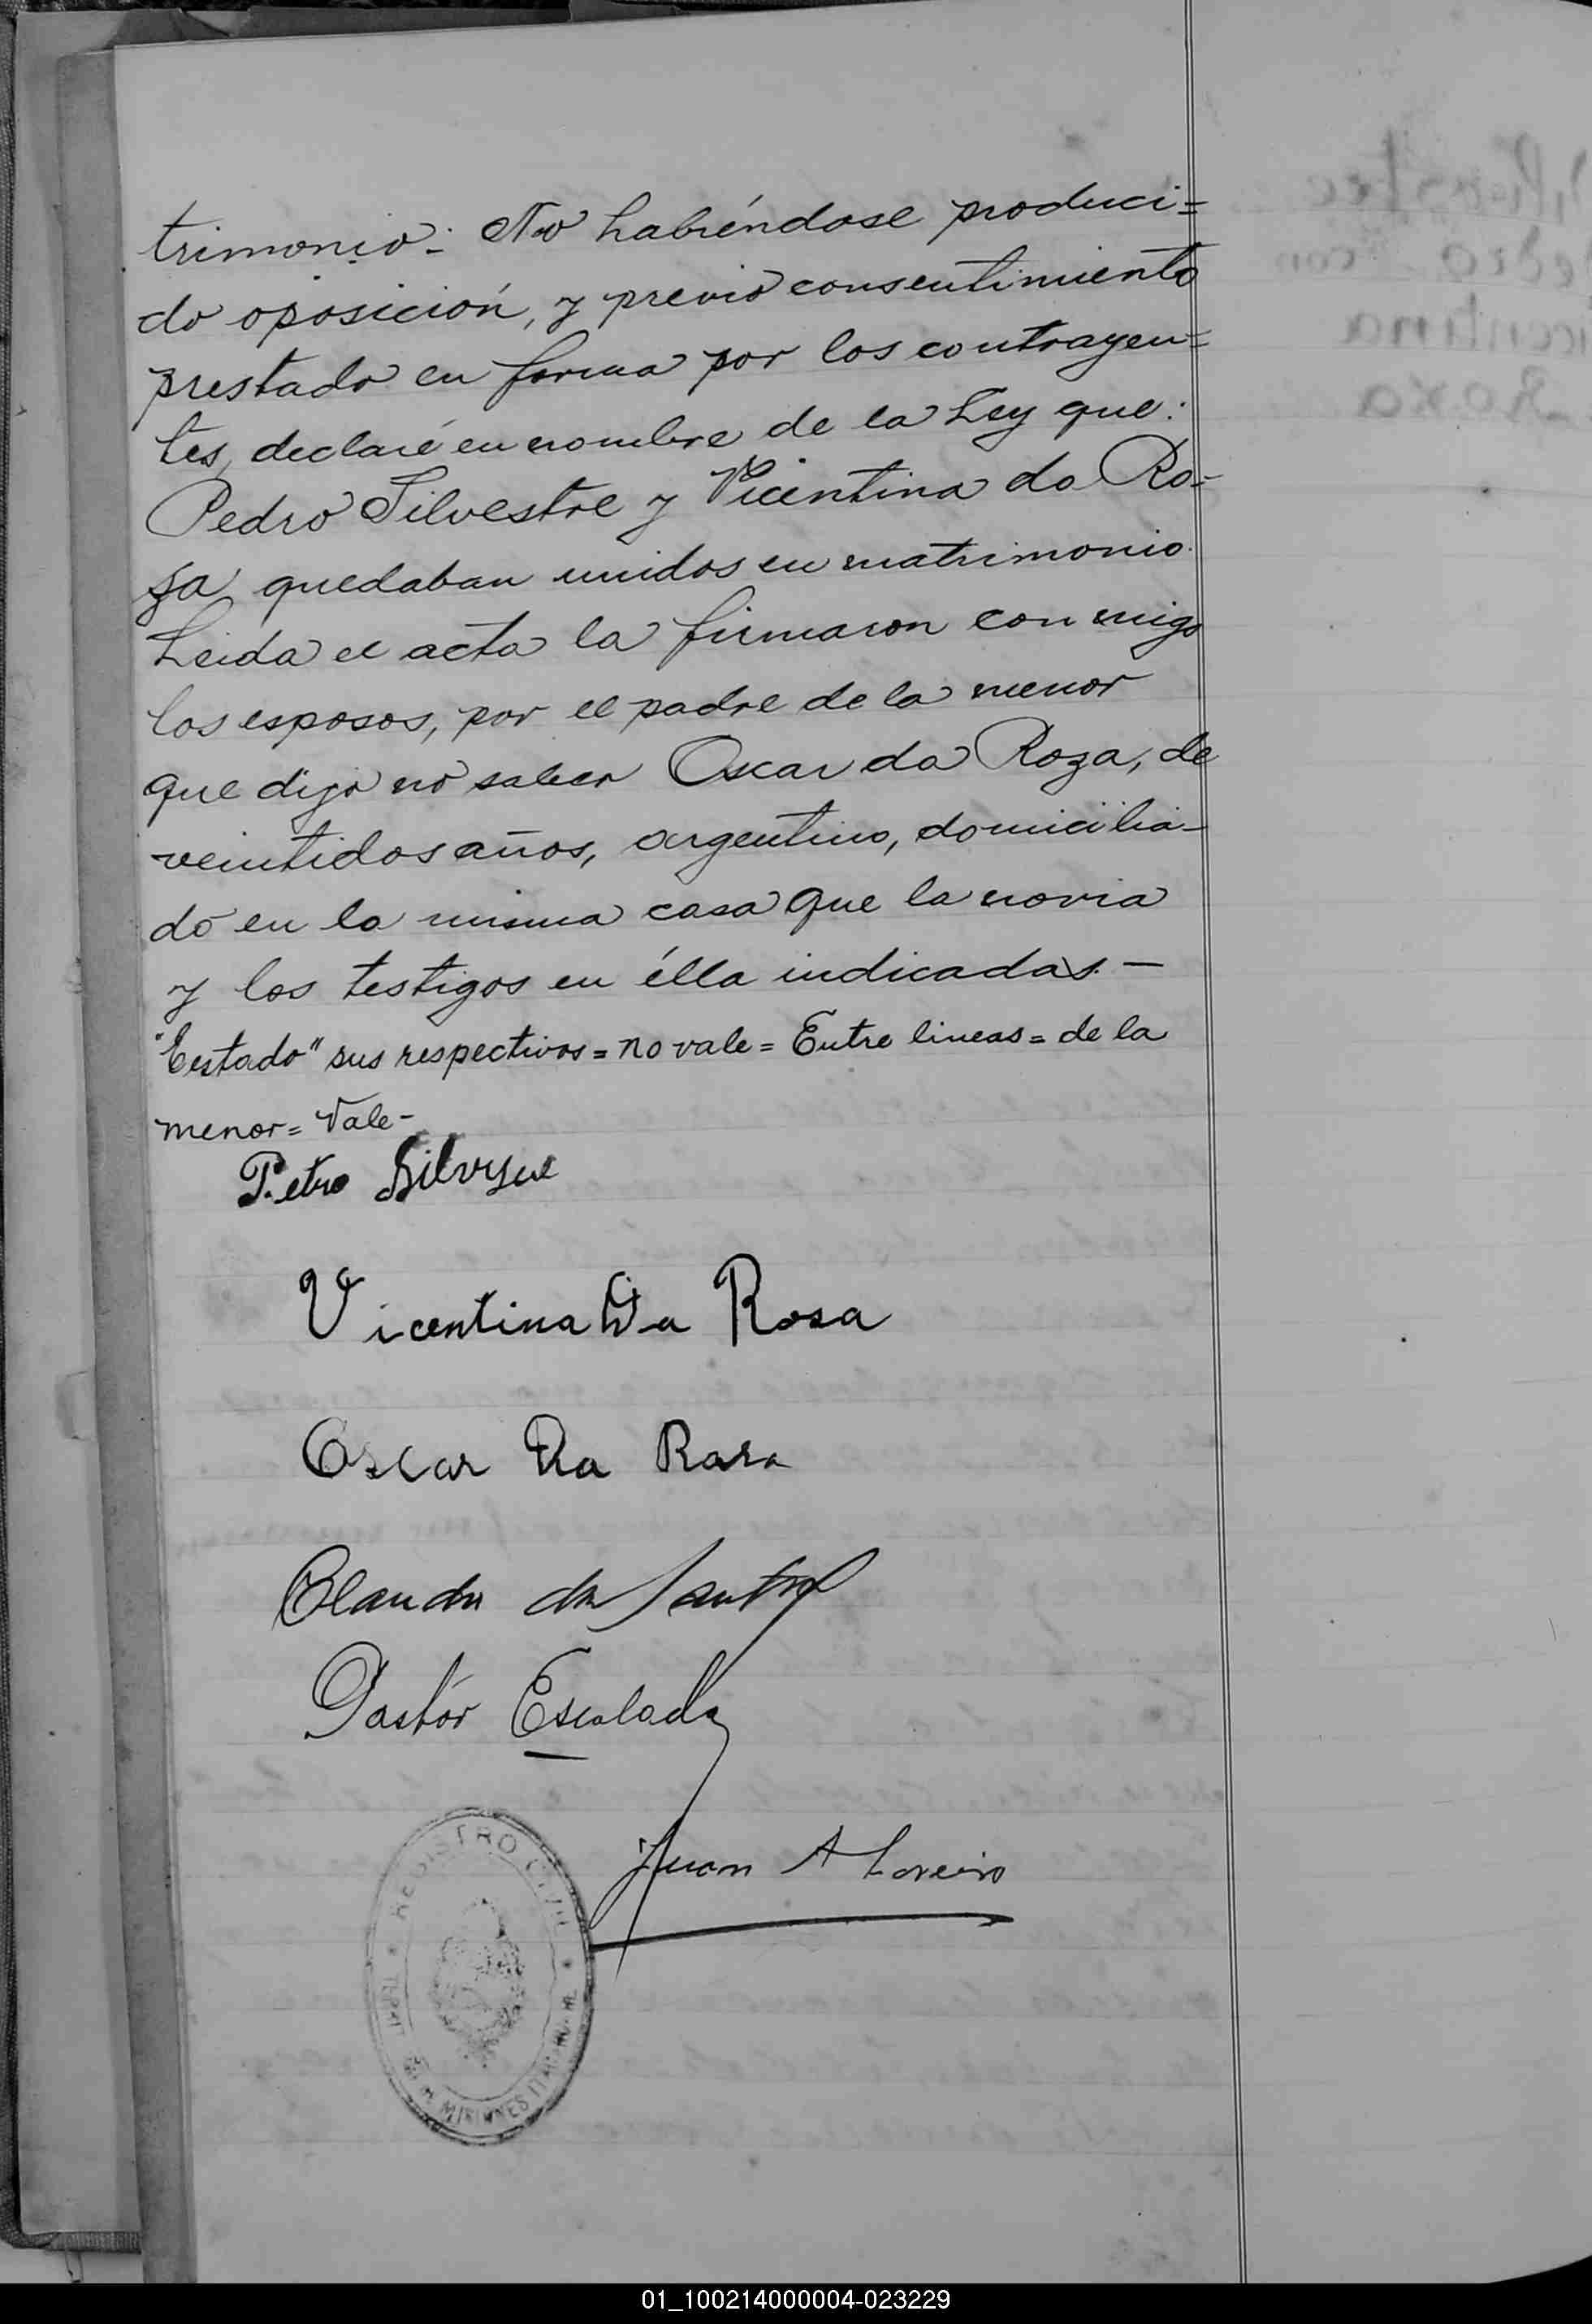 trimonio.- No habiéndose produci=
do oposición, y previo consentimiento
prestado en forma por los contrayen=
tes, declaré en nombre de la Ley que:
Pedro Silvestre y Vicentina da Ro=
za quedaban unidos en matrimonio.
Leida el acta la firmaron con migo
los esposos, por el padre de la menor
que dijo no saber Oscar da Roza, de
veintidos años, argentino, domicilia-
do en la misma casa que la novia
y los testigos en élla indicadas. -
"Testado" sus respectivos = no vale = Entre lineas = de la
menor = Vale -
Petro
Vicentina Da Rosa
Oscar Da Rosa
Pastór Escalada
Juan A Loreiro
REGISTRO CIVIL
MISIONES
01_100214000004-023229